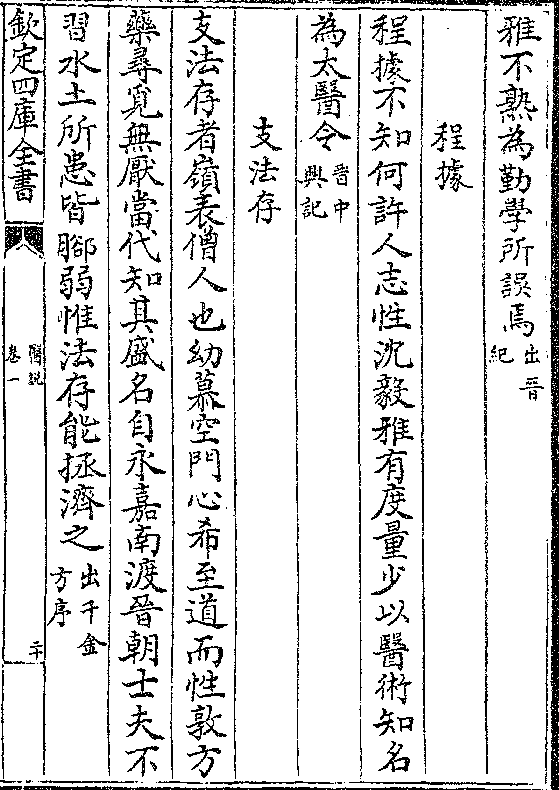 雅不熟為勤學所誤焉出晉紀
程據
程據不知何許人志性沈毅雅有度量少以醫術知名
為太醫令晉中興記
支法存
支法存者嶺表僧人也幼慕空門心希至道而性敦方
藥尋覓無厭當代知其盛名自永嘉南渡晉朝士夫不
習水土所患皆腳弱惟法存能拯濟之出千金方序
欽定四庫全書
醫説
卷一
二十